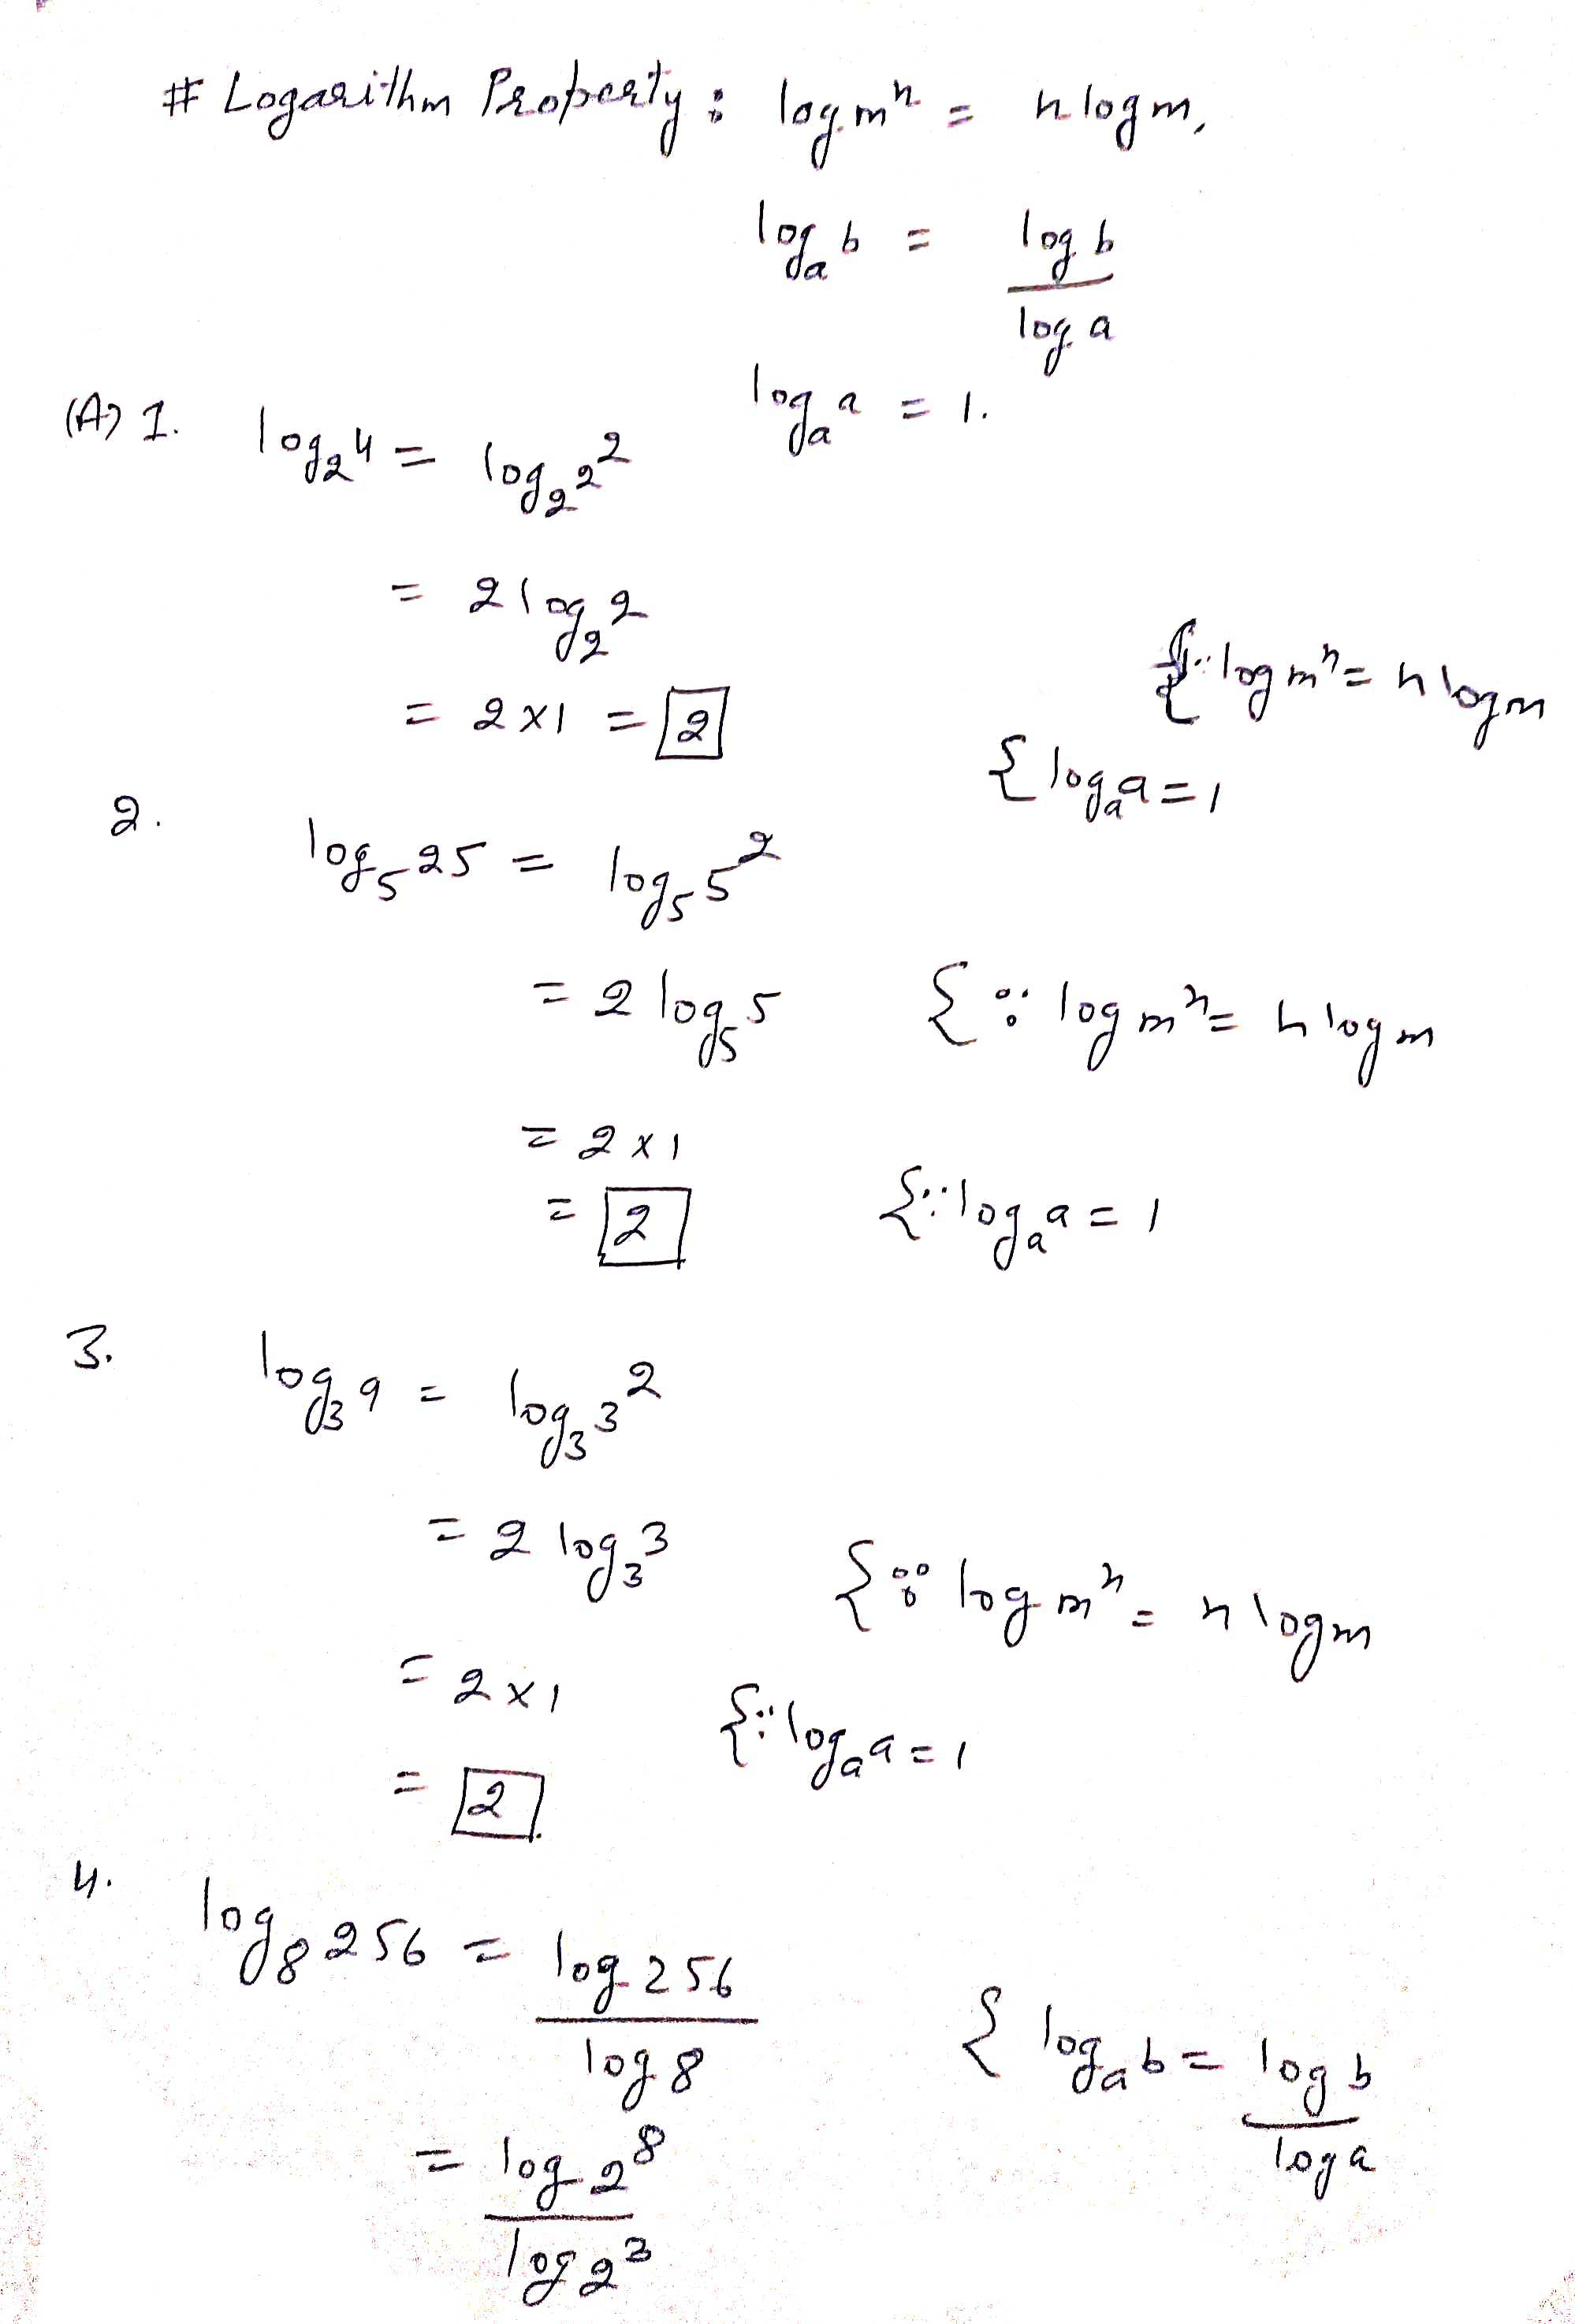 # Logarithm Property : log mⁿ = n log m,
logₐ b = log b / log a
logₐ a = 1.
(A) 1. log₂ 4 = log₂ 2²
= 2 log₂ 2 {∵ log mⁿ = n log m
= 2 x 1 = 2 {logₐ a = 1
2. log₅ 25 = log₅ 5²
= 2 log₅ 5 {∵ log mⁿ = n log m
= 2 x 1
= 2 {∵ logₐ a = 1
3. log₃ 9 = log₃ 3²
= 2 log₃ 3 {∵ log mⁿ = n log m
= 2 x 1 {∵ logₐ a = 1
= 2
4. log₈ 256 = log 256 / log 8 {logₐ b = log b / log a
= log 2⁸ / log 2³